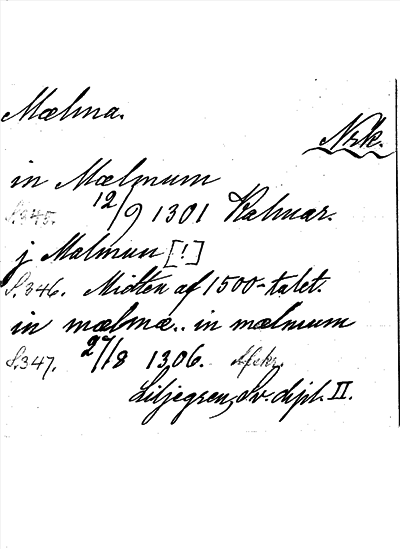 Mælma.
Nrk.
in Mælmum
S.345. 12/9 1301 Kalmar.
j Malmun [!]
S.346. Midten af 1500-talet.
in mælmæ.. in mælmum
S.347. 27/8 1306. Afskr.
Liljegren, Sv. dipl. II.